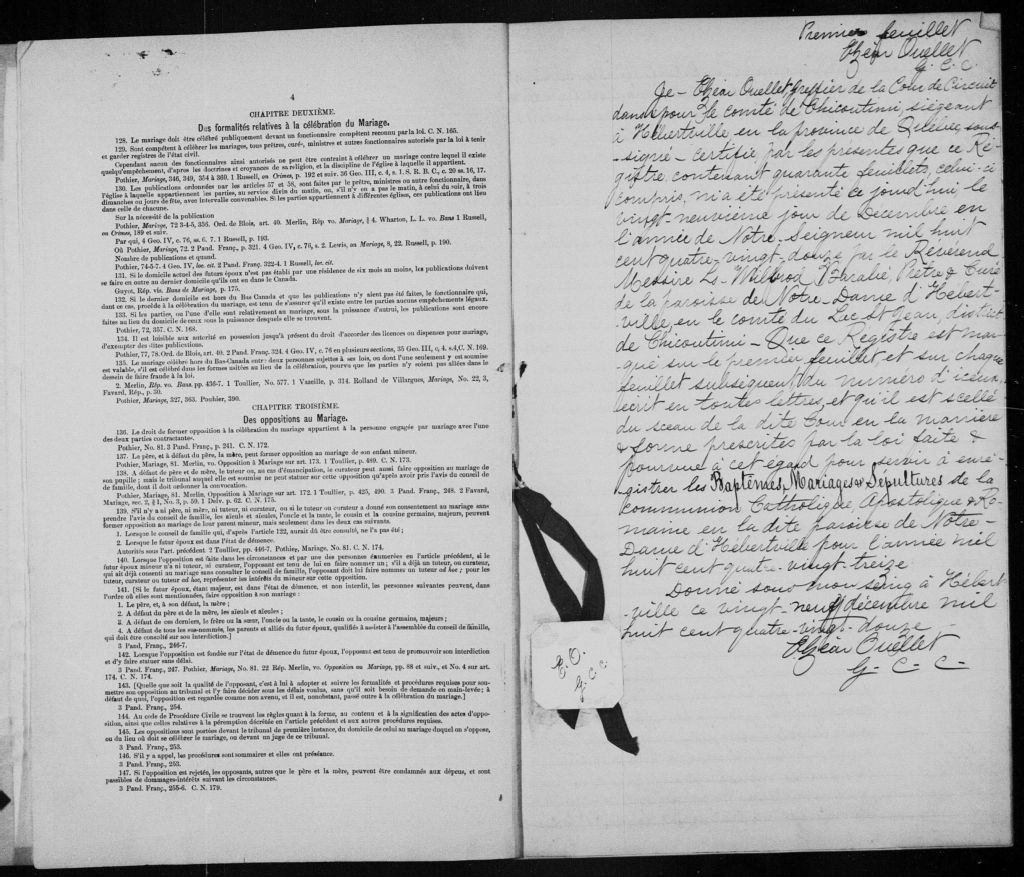 4
CHAPITRE DEUXIÈME.
Des formalités relatives à la célébration du Mariage.
128. Le mariage doit être célébré publiquement devant un fonctionnaire compétent reconnu par la loi. C. N. 165.
129. Sont compétents à célébrer les mariages, tous prêtres, curés, ministres et autres fonctionnaires autorisés par la loi à tenir
et garder registres de l'état civil.
Cependant aucun des fonctionnaires ainsi autorisés ne peut être contraint à célébrer un mariage contre lequel il existe
quelqu'empêchement, d'après les doctrines et croyances de sa religion, et la discipline de l'église à laquelle il appartient.
Pothier, Mariage, 346, 349, 354 à 360. 1 Russell, on Crimes, p. 192 et suiv. 36 Geo. III, c. 4, s. 1. S. R. B. C., c. 20 ss. 16, 17.
130. Les publications ordonnées par les articles 57 et 58, sont faites par le prêtre, ministre ou autre fonctionnaire, dans
l'église à laquelle appartiennent les parties, au service divin du matin, ou, s'il n'y en a pas le matin, à celui du soir, à trois
dimanches ou jours de fête, avec intervalle convenables. Si les parties appartiennent à différentes églises, ces publications ont lieu
dans celle de chacune.
Sur la nécessité de la publication
Pothier, Mariage, 72 3-4-5, 356. Ord. de Blois, art. 40. Merlin, Rép vo. Mariage, § 4. Wharton, L. L. vo. Bans 1 Russell,
on Crimes, 189 et suiv.
Par qui, 4 Geo. IV, c. 76, ss. 6. 7. 1 Russell, p. 193.
Où Pothier, Mariage, 72. 2 Pand. Franç., p. 321. 4 Geo. IV, c. 76, s. 2. Lewis, on Mariage, 8, 22. Russell, p. 190.
Nombre de publications et quand.
Pothier, 74-5-7. 4 Geo. IV, loc. cit. 2 Pand. Franç. 322-4. 1 Russell, loc. cit.
131. Si le domicile actuel des futurs époux n'est pas établi par une résidence de six mois au moins, les publications doivent
se faire en outre au dernier domicile qu'ils ont eu dans le Canada.
Guyot, Rép. vis. Bans de Mariage, p. 175.
132. Si le dernier domicile est hors du Bas Canada et que les publications n'y aient pas été faites, le fonctionnaire qui,
dans ce cas, procède à la célébration du mariage, est tenu de s'assurer qu'il n'existe entre les parties aucuns empêchements légaux.
133. Si les parties, ou l'une d'elles sont relativement au mariage, sous la puissance d'autrui, les publications sont encore
faites au lieu du domicile de ceux sous la puissance desquels elle se trouvent.
Pothier, 72, 357. C. N. 168.
134. Il est loisible aux autorité en possession jusqu'à présent du droit d'accorder des licences ou dispenses pour mariage,
d'exempter des dites publications.
Pothier, 77, 78. Ord. de Blois, art. 40. 2 Pand. Franç. 324. 4 Geo. IV, c. 76 en plusieurs sections, 35 Geo. III, c. 4. s.4, C. N. 169.
135. Le mariage célébré hors du Bas-Canada entre deux personnes sujettes à ses lois, ou dont l'une seulement y est soumise
est valable, s'il est célébré dans les formes usitées au lieu de la célébration, pourvu que les parties n'y soient pas allées dans le
dessein de faire fraude à la loi.
2. Merlin, Rép. vo. Bans. pp. 436-7. 1 Toullier, No. 577. 1 Vazeille, p. 314. Rolland de Villargues, Mariage, No. 22, 3,
Favard, Rép., p. 30.
Pothier, Mariage, 327, 363. Pouhier, 390.
CHAPITRE TROISIÈME.
Des oppositions au Mariage.
136. Le droit de former opposition à la célébration du mariage appartient à la personne engagée par mariage avec l'une
des deux parties contractantes.
Pothier, No. 81. 3 Pand. Franç., p. 241. C. N. 172.
137. Le père, et à défaut du père, la mère, peut former opposition au mariage de son enfant mineur.
Pothier, Mariage, 81. Merlin, vo. Opposition à Mariage sur art. 173. 1 Toullier, p. 489. C. N. 173.
138. A défaut de père et de mère, le tuteur ou, au cas d'émancipation, le curateur peut aussi faire opposition au mariage de
son pupille; mais le tribunal auquel elle est soumise ne peut statuer sur cette opposition qu'après avoir pris l'avis du conseil de
famille, dont il doit ordonner la convocation.
Pothier, Mariage, 81. Merlin, Opposition à Mariage sur art. 172. 1 Toullier, p. 425, 490. 3 Pand. Franç., 248. 2 Favard,
Mariage, sec. 2, §1, No. 3, p. 59. 1 Delv. p. 62. C. N. 175.
139. S'il n'y a ni père, ni mère, ni tuteur, ni curateur, ou si le tuteur ou curateur a donné son consentement au mariage sans
prendre l'avis du conseil de famille, les aïeuls et aïeules, l'oncle et la tante, le cousin et la cousine germains, majeurs, peuvent
former opposition au mariage de leur parent mineur, mais seulement dans les deux cas suivants.
1. Lorsque le conseil de famille qui, d'après l'article 122, aurait dû être consulté, ne l'a pas été;
2. Lorsque le futur époux est dans l'état de démence.
Autorités sous l'art. précédent. 2 Toullier, pp. 446-7. Pothier, Mariage, No. 81. C. N. 174.
140. Lorsque l'opposition est faite dans les circonstances et par une des personnes énumérées en l'article précédent, si le
futur époux mineur n'a ni tuteur, ni curateur, l'opposant est tenu de lui en faire nommer un; s'il a déjà un tuteur, ou curateur,
qui ait déjà consenti au mariage sans consulter le conseil de famille, l'opposant doit lui faire nommer un tuteur ad hoc; pour les
tuteur, curateur ou tuteur ad hoc, représenter les intérêts du mineur sur cette opposition.
141. [Si le futur époux, étant majeur, est dans l'état de démence, et non interdit, les personnes suivantes peuvent, dans
l'ordre où elles sont mentionnées, faire opposition à son mariage:
1. Le père, et, à son défaut, la mère;
2. A défaut du père et de la mère, les aïeuls et aïeules;
3. A défaut de ces derniers, le frère ou la sœur, l'oncle ou la tante, le cousin ou la cousine germains, majeurs;
4. A défaut de tous les susnommés, les parents et alliés du futur époux, qualifiés à assister à l'assemblée du conseil de famille,
qui doit être consulté sur son interdiction.]
3 Pand. Franç., 246-7.
142. Lorsque l'opposition est fondée sur l'état de démence du futur époux, l'opposant est tenu de promouvoir son interdiction
et d'y faire statuer sans délai.
3 Pand. Franç., 247. Pothier, Mariage, No. 81. 22 Rép. Merlin, vo. Opposition au Mariage, pp. 88 et suiv., et No. 4 sur art.
174. C. N. 174.
143. [Quelle que soit la qualité de l'opposant, c'est à lui à adopter et suivre les formalités et procédures requises pour sou-
mettre son opposition au tribunal et l'y faire décider sous les délais voulus, sans qu'il soit besoin de demande en main-levée; à
défaut de quoi, l'opposition est regardée comme non avenu, et il est, nonobstant, passé outre à la célébration du mariage.]
3 Pand. Franç., 254.
144. Au code de Procédure Civile se trouvent les règles quant à la forme, au contenu et à la signification des actes d'oppo-
sition, ainsi que celles relatives à la péremption décrétée en l'article précédent et aux autres procédures requises.
145. Les oppositions sont portées devant le tribunal de première instance, du domicile de celui au mariage duquel on s'oppose,
ou du lieu où doit se célébrer le mariage, ou devant un juge de ce tribunal.
3 Pand. Franç., 253.
146. S'il y a appel, les procédures sont sommaires et elles ont préséance.
3 Pand. Franç., 253.
147. Si l'opposition est rejetée, les opposants, autres que le père et la mère, peuvent être condamnés aux dépens, et sont
passibles de dommages-intérêts suivant les circonstances.
3 Pand. Franç., 255-6. C. N. 179.
Premier feuillet
Elzéar Ouellet
G. C. C.
Je - Elzéar Ouellet, Greffier de la Cour de Circuit
dans & pour le comté de Chicoutimi, siégeant
à Hébertville en la province de Québec, sous-
signé - certifie par les présentes que ce Ré-
gistre, contenant quarante feuillets, celui-ci
compris, m'a été présenté ce jourd'hui le
vingt-neuvième jour de Décembre en
l'année de Notre-Seigneur mil huit
cent quatre-vingt-douze par le Révérend
Messire L. Wilbrod Barabé, Prêtre & Curé
de la paroisse de Notre-Dame d'Hébert-
ville, en le comté du Lac St Jean, district
de Chicoutimi - Que ce Registre est mar-
qué sur le premier feuillet et sur chaque
feuillet subséquent du numéro d'iceux,
écrit en toutes lettres, et qu'il est scellé
du sceau de la dite Cour en la manière
& forme prescrites par la loi faite &
pourvue à cet égard pour servir à enré-
gistrer les Baptêmes, Mariages & Sépultures de la
communion Catholique, Apostolique & Ro-
maine en la dite paroisse de Notre-
Dame d'Hébertville pour l'année mil
huit cent quatre-vingt-treize
Donné sous mon seing à Hébert-
ville ce vingt-neuf décembre mil
huit cent quatre-vingt-douze -
Elzéar Ouellet
G. C. C.
E. O.
G. C. C.